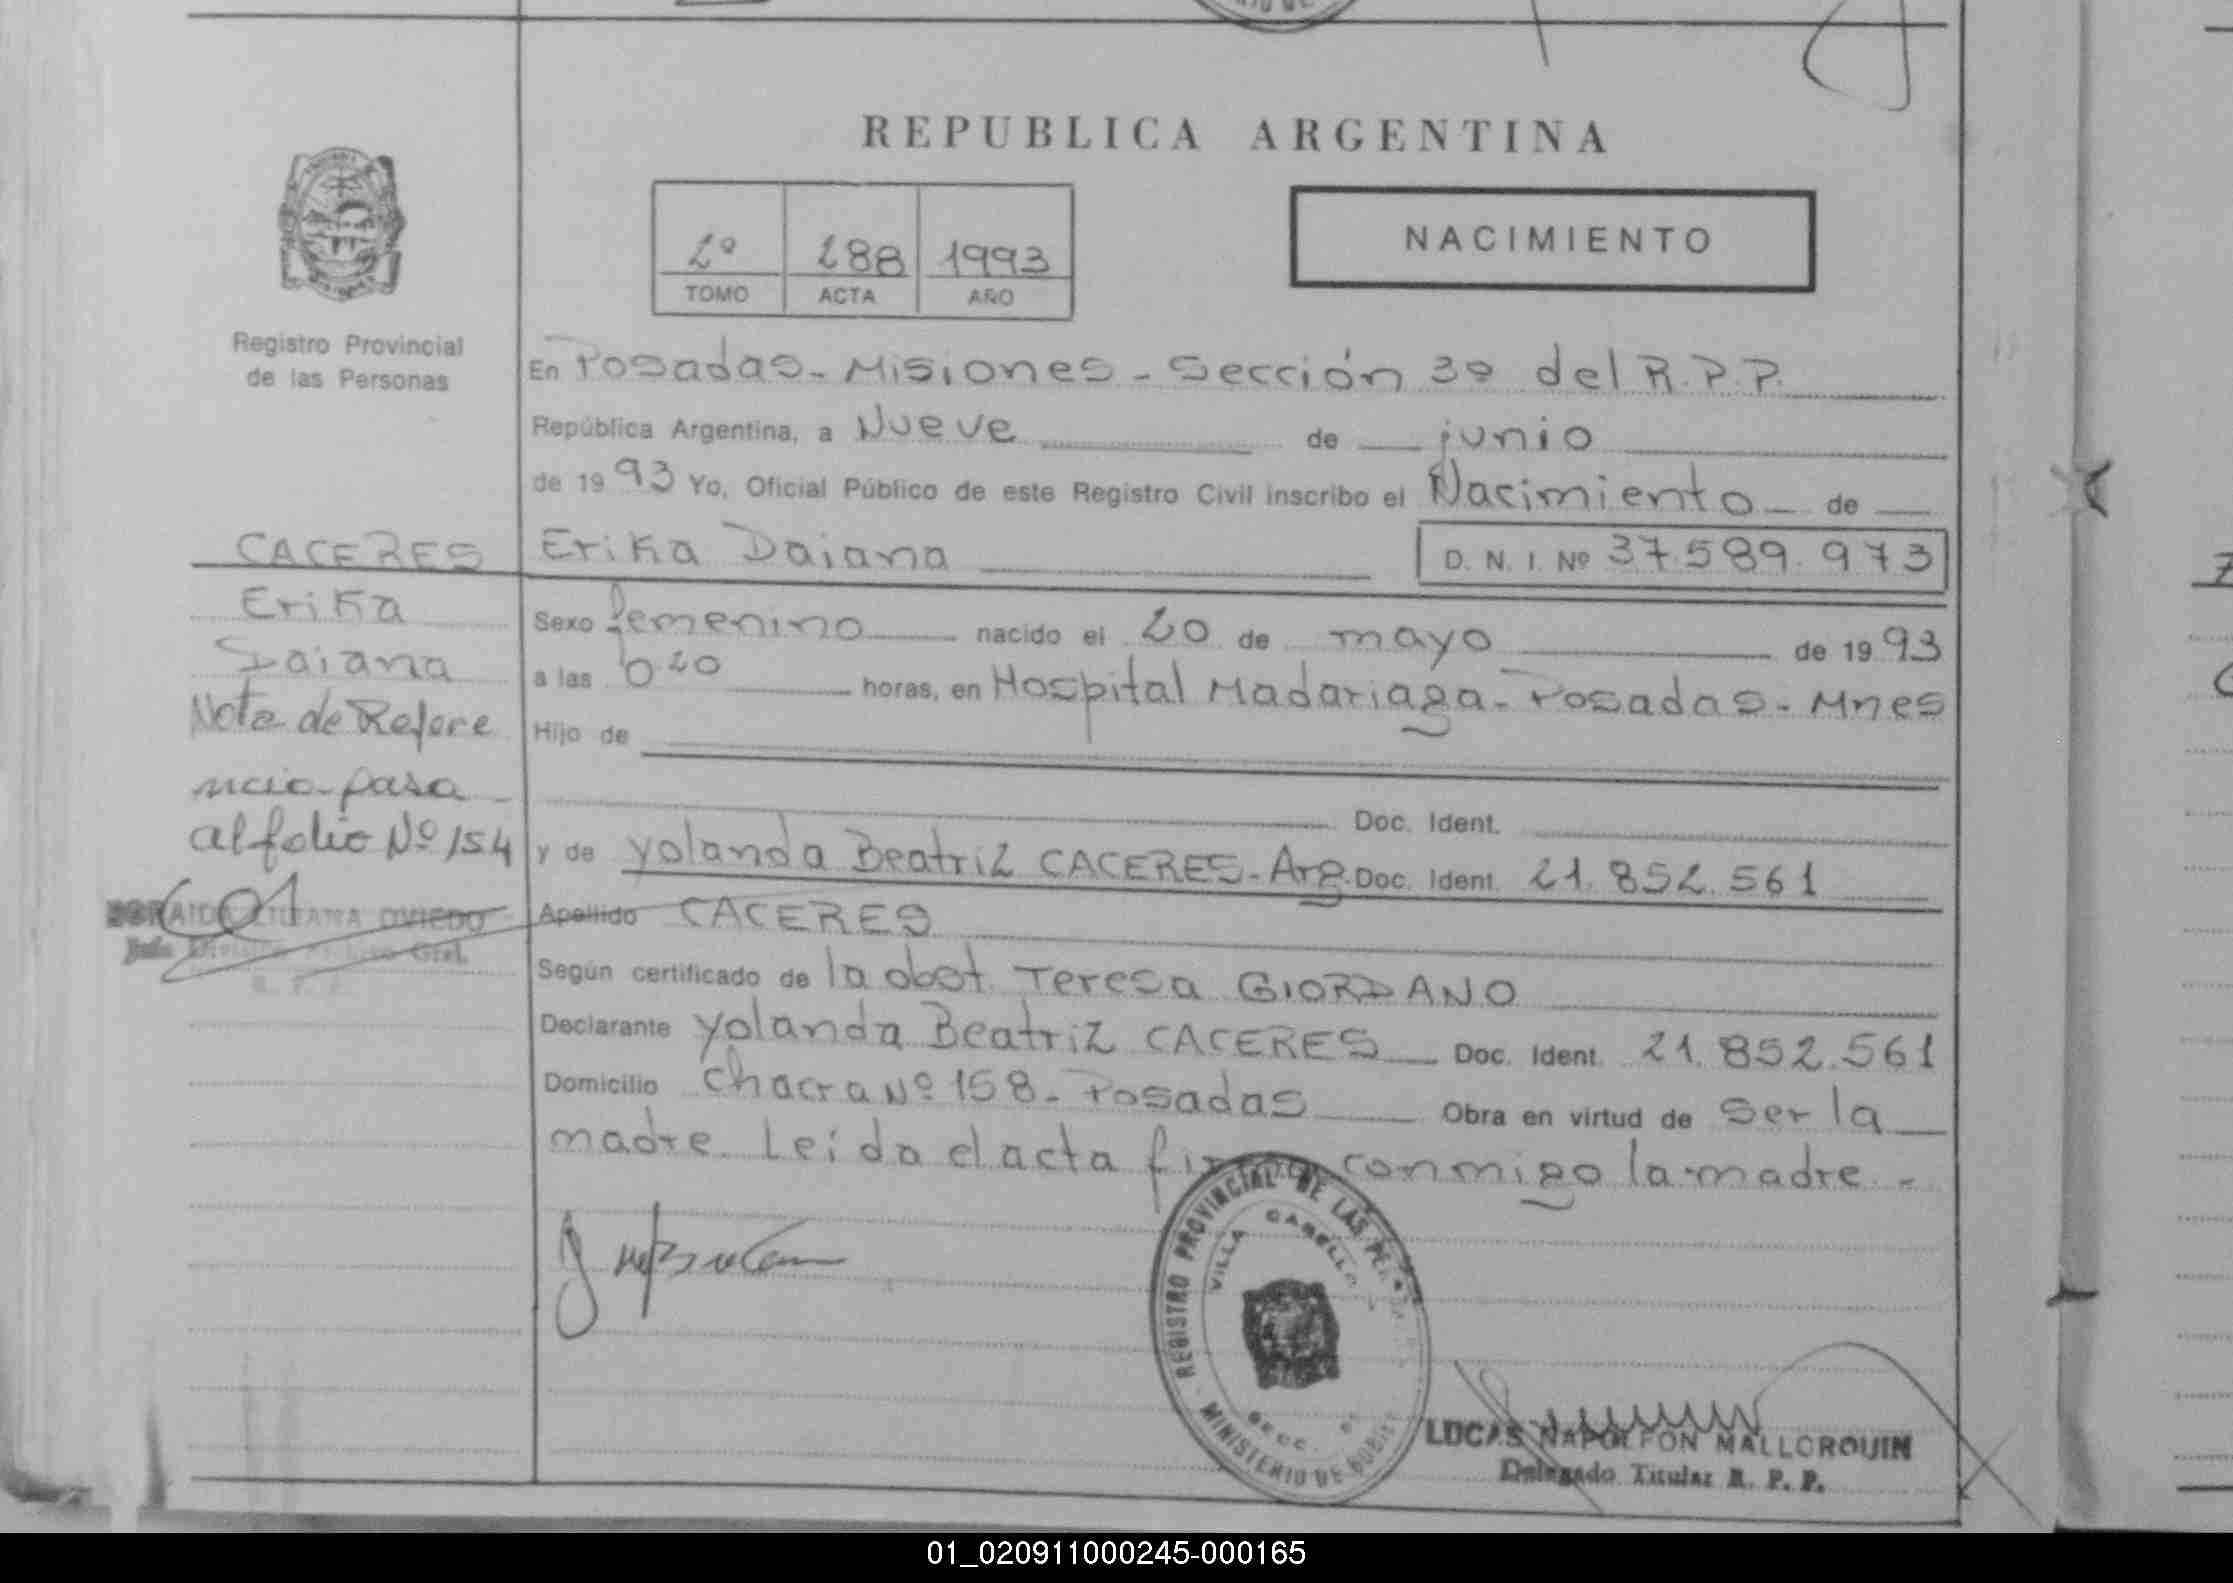 REPUBLICA ARGENTINA
2º 288 1993
TOMO ACTA AÑO
NACIMIENTO
Registro Provincial
de las Personas
CACERES
Erika
Daiana
Nota de Refere
ncia pasa
al folio Nº 154
ZORAIDA LILIANA OVIEDO
Jefe División Archivo Gral.
R. P. P.
En Posadas - Misiones - Sección 3º del R.P.P.
República Argentina, a Nueve de junio
de 1993 Yo, Oficial Público de este Registro Civil inscribo el Nacimiento de
Erika Daiana D. N. I. Nº 37.589.973
Sexo femenino nacido el 20 de mayo de 1993
a las 0 20 horas, en Hospital Madariaga - Posadas - Mnes
Hijo de
Doc. Ident.
y de Yolanda Beatriz CACERES - Arg. Doc. Ident. 21.852.561
Apellido CACERES
Según certificado de la obst. Teresa GIORDANO
Declarante Yolanda Beatriz CACERES Doc. Ident. 21.852.561
Domicilio Chacra Nº 158 - Posadas Obra en virtud de ser la
madre. Leída el acta firma conmigo la madre. -
REGISTRO PROVINCIAL DE LAS PE
VILLA CABELLO
SECC.
MINISTERIO DE GOBIE
LUCAS NAPOLEON MALLORQUIN
Delegado Titular R. P. P.
01_020911000245-000165